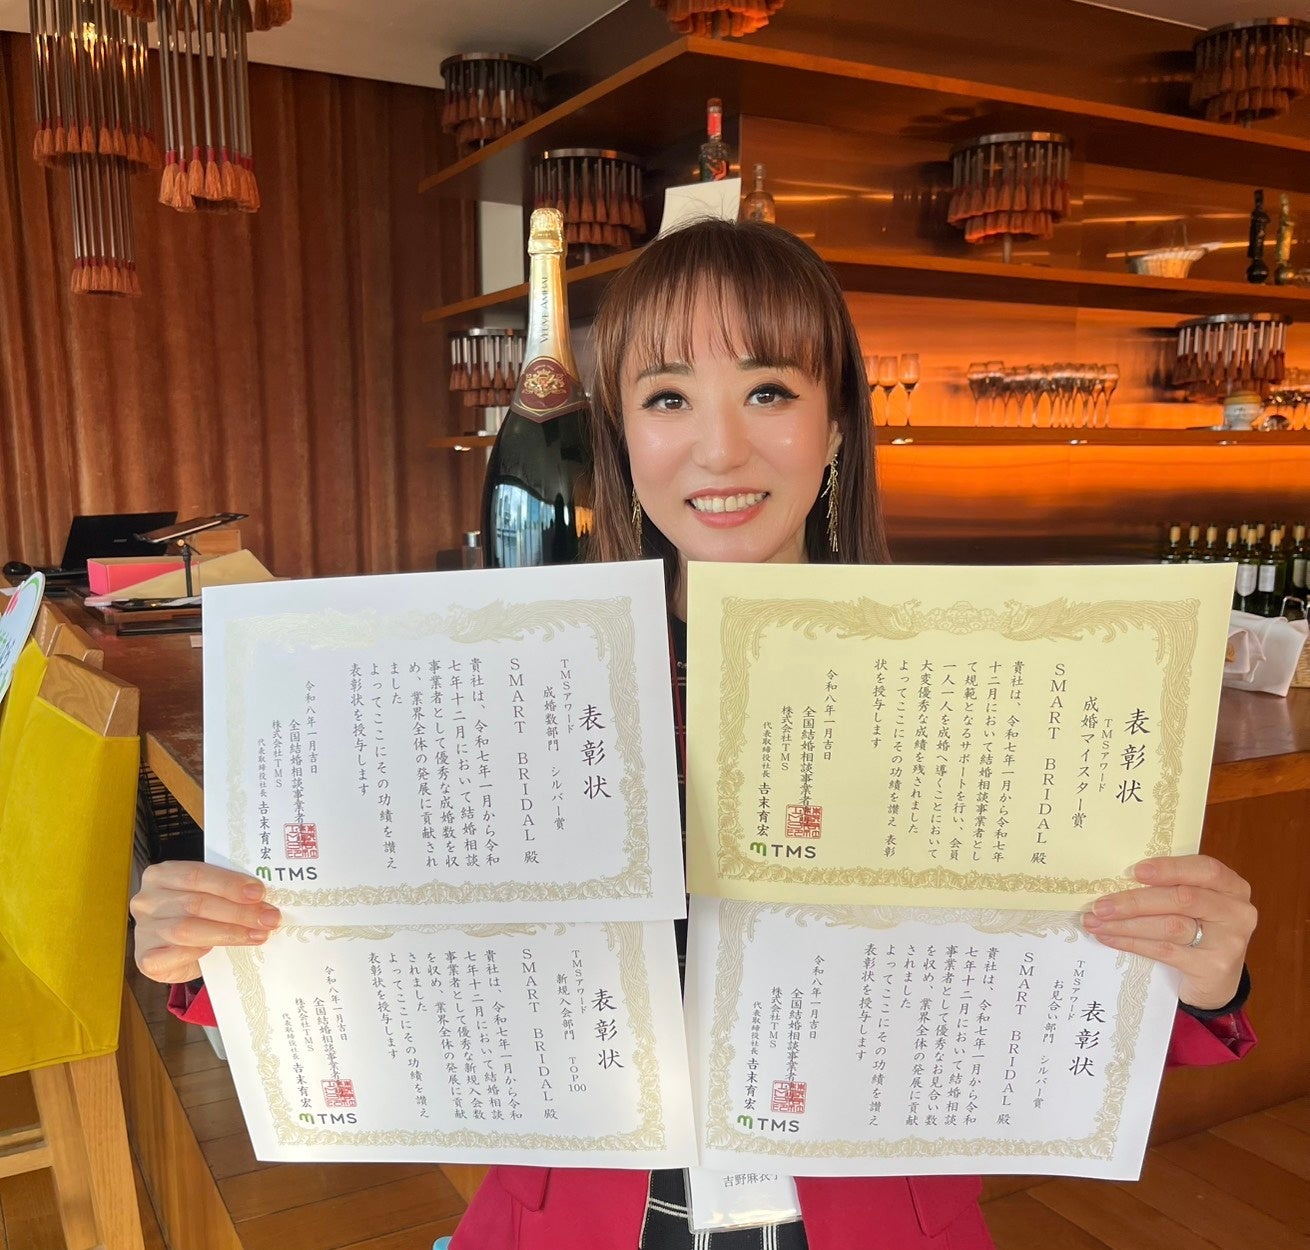 VEUVE AMBAL
表彰状
TMSアワード
成婚数部門 シルバー賞
SMART BRIDAL 殿
貴社は、令和七年一月から令和
七年十二月において結婚相談
事業者として優秀な成婚数を収
め、業界全体の発展に貢献され
ました
よってここにその功績を讃え
表彰状を授与します
令和八年一月吉日
全国結婚相談事業者
株式会社TMS
代表取締役社長 吉末育宏
TMS
表彰状
TMSアワード
成婚マイスター賞
SMART BRIDAL 殿
貴社は、令和七年一月から令和七年
十二月において結婚相談事業者とし
て規範となるサポートを行い、会員
一人一人を成婚へ導くことにおいて
大変優秀な成績を残されました
よってここにその功績を讃え 表彰
状を授与します
令和八年一月吉日
全国結婚相談事業者
株式会社TMS
代表取締役社長 吉末育宏
TMS
表彰状
TMSアワード
新規入会部門 TOP100
SMART BRIDAL 殿
貴社は、令和七年一月から令和
七年十二月において結婚相談
事業者として優秀な新規入会数
を収め、業界全体の発展に貢献
されました
よってここにその功績を讃え
表彰状を授与します
令和八年一月吉日
全国結婚相談事業者
株式会社TMS
代表取締役社長 吉末育宏
TMS
表彰状
TMSアワード
お見合い部門 シルバー賞
SMART BRIDAL 殿
貴社は、令和七年一月から令和
七年十二月において結婚相談
事業者として優秀なお見合い数
を収め、業界全体の発展に貢献
されました
よってここにその功績を讃え
表彰状を授与します
令和八年一月吉日
全国結婚相談事業者
株式会社TMS
代表取締役社長 吉末育宏
TMS
吉野麻衣子